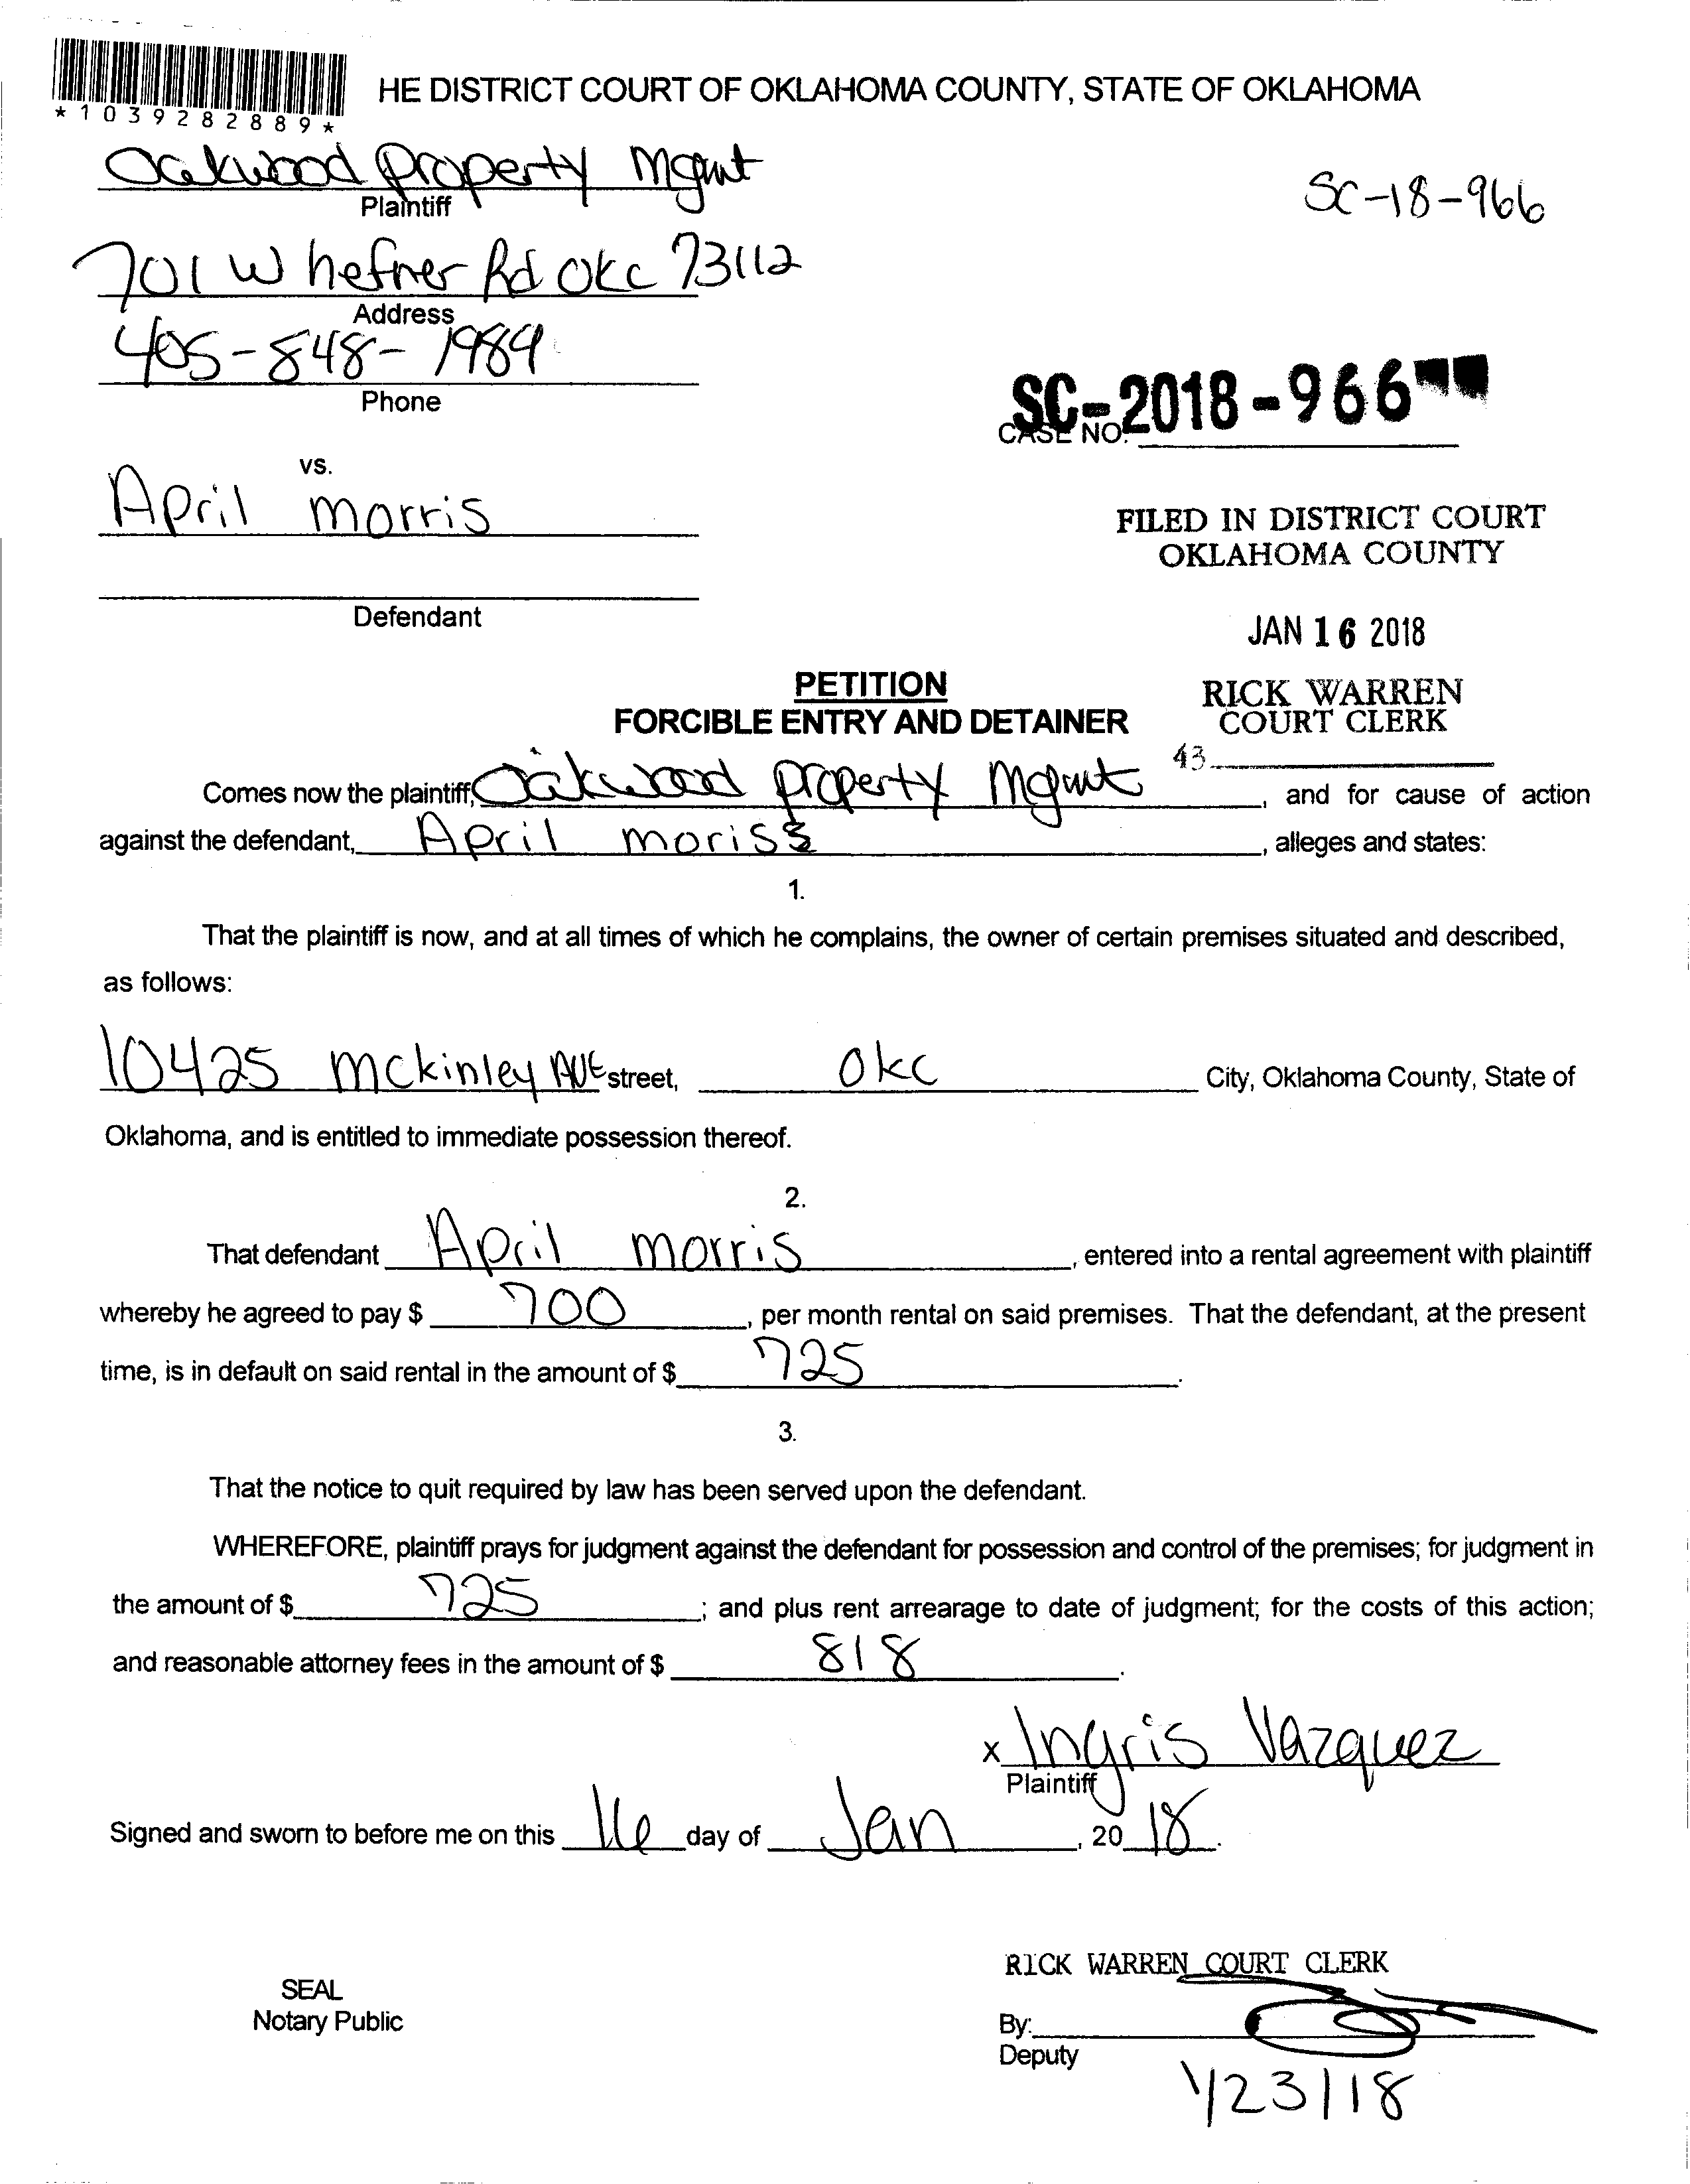 *1039282889*
HE DISTRICT COURT OF OKLAHOMA COUNTY, STATE OF OKLAHOMA
Oakwood Property Mgmt
Plaintiff
SC-18-966
701 W hefner Rd OKC 73112
Address
405-848-1989
Phone
SC-2018-966
CASE NO.
vs.
April morris
Defendant
FILED IN DISTRICT COURT
OKLAHOMA COUNTY
JAN 16 2018
RICK WARREN
COURT CLERK
43
PETITION
FORCIBLE ENTRY AND DETAINER
Comes now the plaintiff, Oakwood property Mgmt, and for cause of action
against the defendant, April moriss, alleges and states:
1.
That the plaintiff is now, and at all times of which he complains, the owner of certain premises situated and described,
as follows:
10425 mckinley AVE street, OKC City, Oklahoma County, State of
Oklahoma, and is entitled to immediate possession thereof.
2.
That defendant April morris, entered into a rental agreement with plaintiff
whereby he agreed to pay $ 700, per month rental on said premises. That the defendant, at the present
time, is in default on said rental in the amount of $ 725.
3.
That the notice to quit required by law has been served upon the defendant.
WHEREFORE, plaintiff prays for judgment against the defendant for possession and control of the premises; for judgment in
the amount of $ 725; and plus rent arrearage to date of judgment; for the costs of this action;
and reasonable attorney fees in the amount of $ 818.
x Ingris Vazquez
Plaintiff
Signed and sworn to before me on this 16 day of Jan, 20 18.
RICK WARREN COURT CLERK
SEAL
Notary Public
By:
Deputy
1/23/18